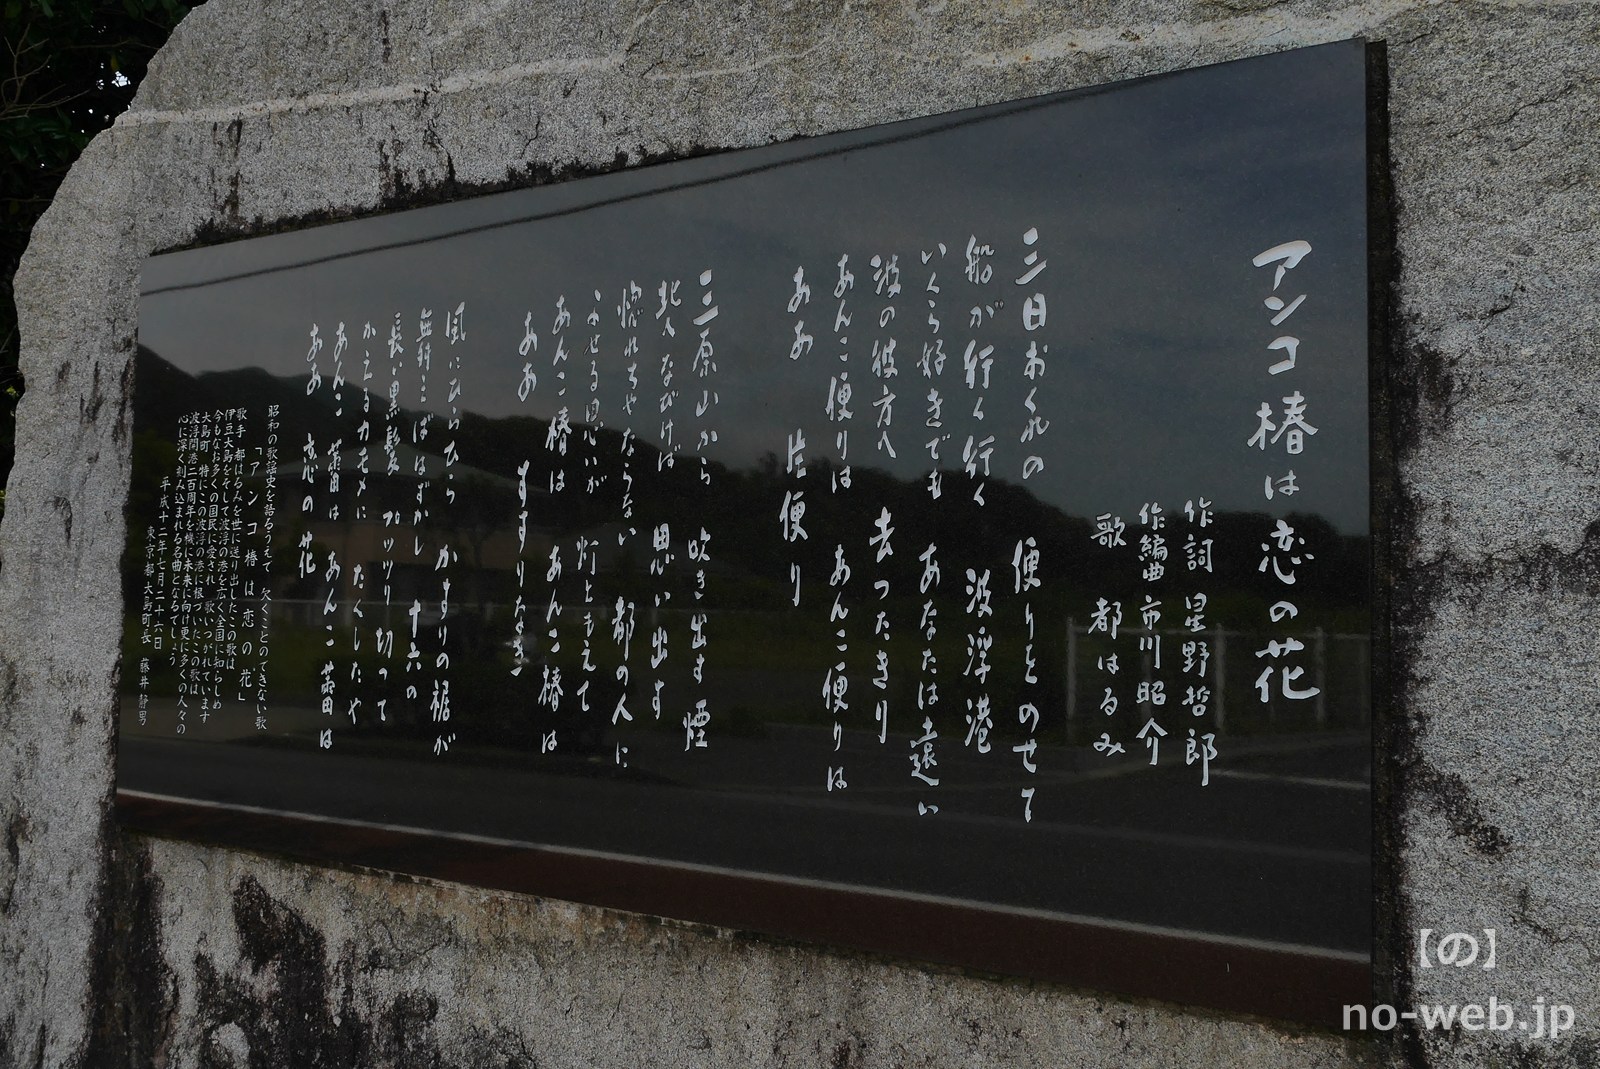 アンコ椿は恋の花
作詞 星野哲郎
作編曲 市川昭介
歌 都はるみ
三日おくれの 便りをのせて
船が行く行く 波浮港
いくら好きでも あなたは遠い
波の彼方へ 去ったきり
あんこ便りは あんこ便りは
ああ 片便り
三原山から 吹き出す煙
北へなびけば 思い出す
惚れちゃならない 都の人に
よせる思いが 灯ともえて
あんこ椿は あんこ椿は
ああ すすりなき
風にひらひら かすりの裾が
舞えばはずかし 十六の
長い黒髪 プッツリ切って
かえるカモメに たくしたや
あんこ蕾は あんこ蕾は
ああ 恋の花
昭和の歌謡史を語るうえで 欠くことのできない歌
「アンコ椿は恋の花」
歌手 都はるみを世に送り出したこの歌は
伊豆大島をそして波浮の港を広く全国に知らしめ
今もなお多くの国民に愛され 歌いつがれています
大島町 特にこの波浮の港に根づいたこの歌は
波浮開港二百周年を機に未来に向け更に多くの人々の
心に深く刻み込まれる名曲となるでしょう
平成十二年七月二十六日
東京都大島町長 藤井静男
【の】
no-web.jp